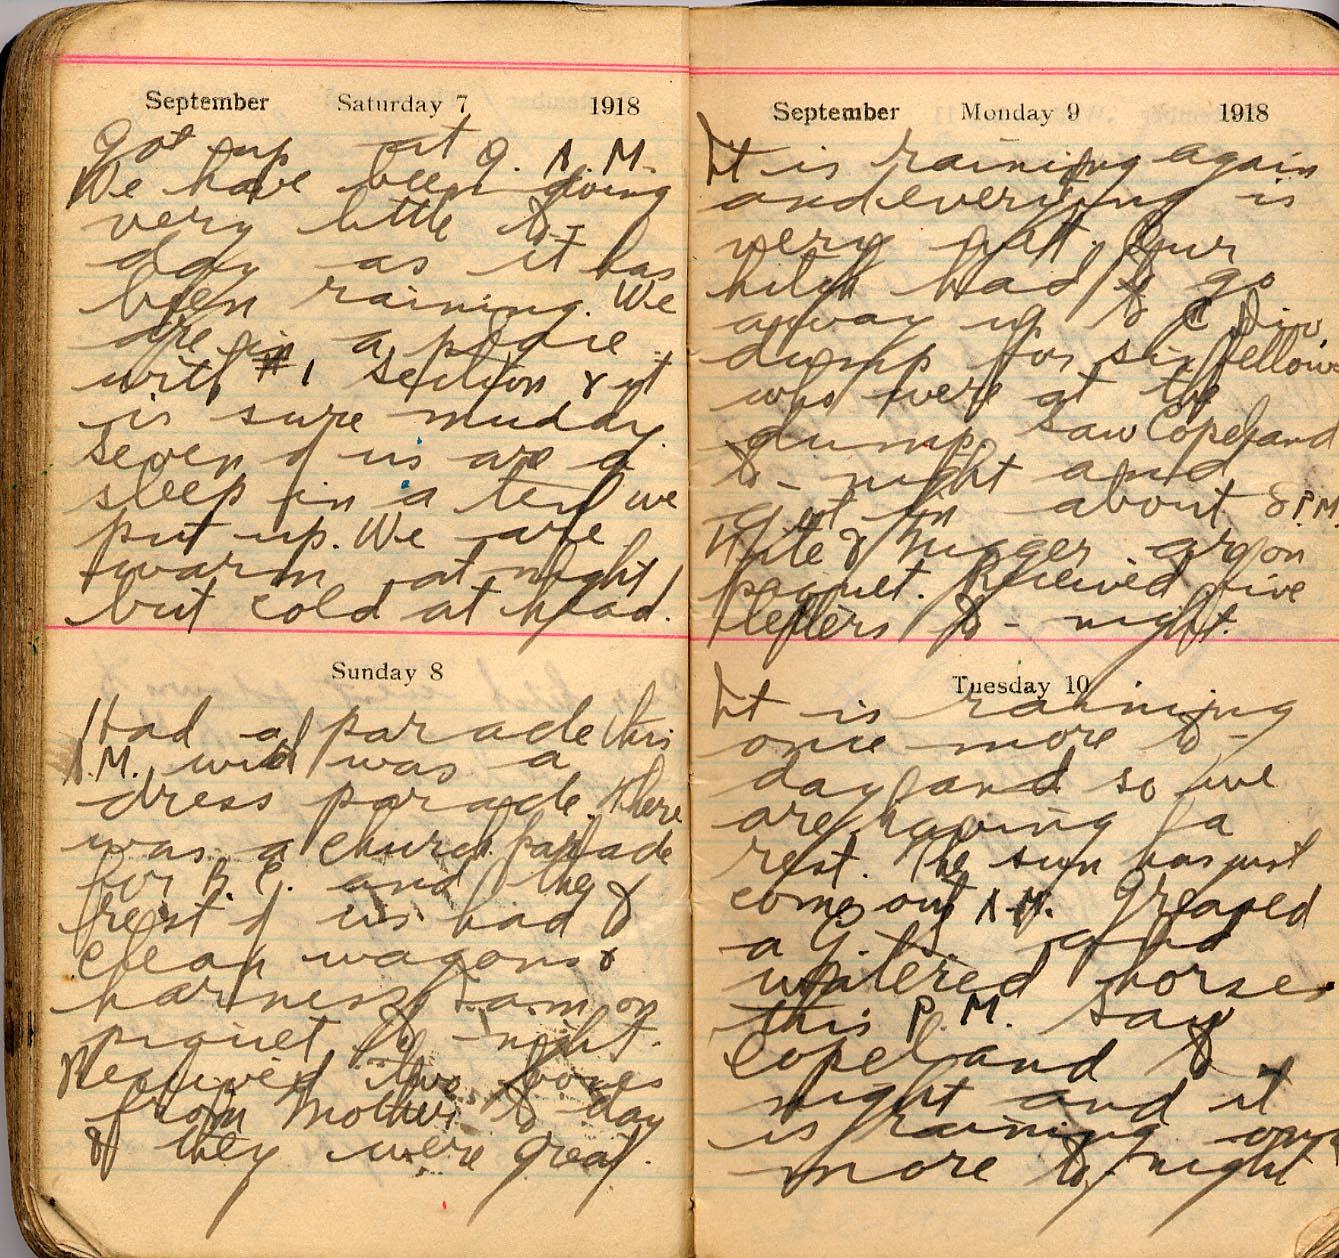 September Saturday 7 1918
Got up at 9. A.M.
We have been doing
very little to-
day as it has
been raining. We
are in a place
with #1 section & it
is sure muddy.
Seven of us are a
sleep in a tent we
put up. We are
warm at night
but cold at head.
Sunday 8
Had a parade this
A.M. was a
dress parade. There
was a church parade
for R.C. and the
rest of us had to
clean wagons &
harness. I am on
piquet to-night.
Received two boxes
from Mother to day
& they were great.
September Monday 9 1918
It is raining again
and everything is
very wet. Our
hitch had to go
away up to C Div.
dump for six fellows
who were at the
dump. Saw Copeland
to-night and
got in about 8 P.M.
& Nigger are on
piquet. Received five
letters to-night.
Tuesday 10
It is raining
once more to-
day and so we
are having a
rest. The sun has just
come out A.M. Greased
a G.S. and
watered horses
this P.M. Saw
Copeland to
night and it
is raining once
more to-night